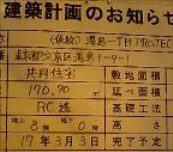 建築計画のお知らせ
(仮称)湯島一丁目PROJECT
東京都文京区湯島1-9-1
共同住宅 敷地面積
170.70㎡ 延べ面積
RC造 基礎工法
地上 8階 地下 0階 高さ
17年3月3日 完了予定